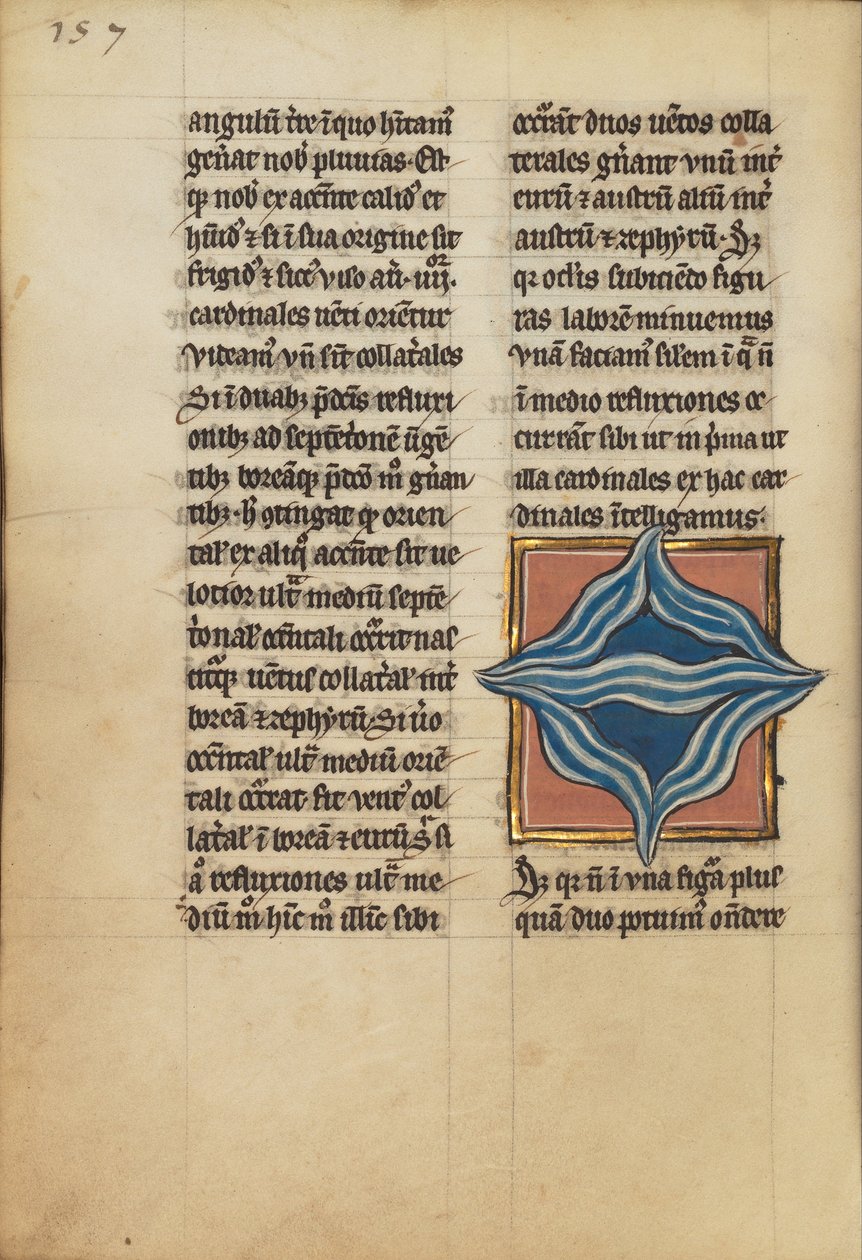 157
angulū t̄re ī quo hītam⁹
gen̄at nob̄ pluuias. Est
qꝫ nob̄ ex accn̄te calid⁹ et
hūid⁹ ⁊ si ī sua origine sit
frigid⁹ ⁊ sicc⁹ viso an̄. iiij.
cardinales uēti oriētur
videam⁹ vn̄ sīt collat̄ales
Si ī duabꝫ p̄dc̄is refluxi
onibꝫ ad septēt̄onē ūgē
tibꝫ boreāqꝫ p̄dc̄o m̊ gn̄an
tibꝫ. h̄ ꝯtingat qͥ orien
tal̄ ex aliqͦ accn̄te sit ue
locior ult̄ᵃ mediū septē
t̄onal̄ occn̄tali occᵃrit nas
citᵃqꝫ uentus collat̄al̄ int̄
boreā ⁊ zephyrū. Si ūo
occn̄tal̄ ult̄ᵃ mediū oriē
tali occᵃrat fit vent⁹ col
lat̄al̄ ī boreā ⁊ eurū Sᵃ si
å refluxiones ult̄ᵃ me
diū m̊ hīc m̊ illīc sibi
occᵃrāt duos uētos colla
terales gn̄ant vnū int̄
eurū ⁊ austrū aliū int̄
austrū ⁊ zephyrū. Sꝫ
qꝛ ocl̄is subiciēdo figu
ras laborē minuemus
vnā faciam⁹ sil̄em ī qᵃ n̄
ī medio refluxiones oc
currāt sibi ut in p̄ma ut
illa cardinales ex hac car
dinales ītelligamus.
Sꝫ qꝛ n̄ ī vna figᵃa plus
quā duo potuim⁹ on̄dere